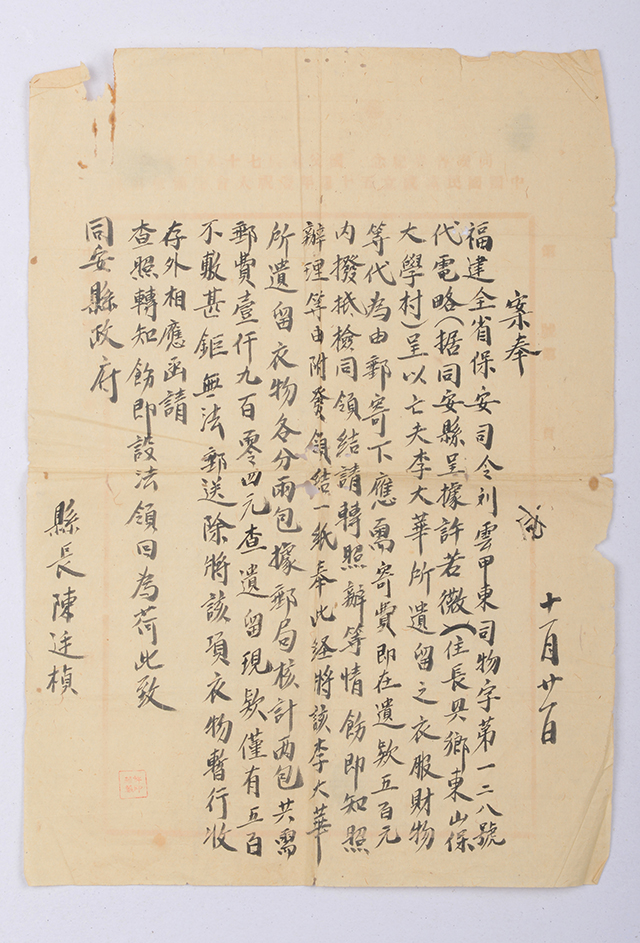 十一月廿一日
案奉
福建全省保安司令刘雲甲東司物字第一二八號
代電略(据同安縣呈據許若微(住長興鄉東山保
大學村)呈以亡夫李大華所遺留之衣服財物
等代為由郵寄下應需寄費即在遺欵五百元
內撥抵檢同領結請轉照辦等情飭即知照
辦理等由附發領結一紙奉此経將該李大華
所遺留衣物各分兩包據郵局核計两包共需
郵費壹仟九百零四元查遺留現欵僅有五百
不敷甚鉅無法郵送除將該項衣物暫行收
存外相應函請
查照轉知飭即設法領回為荷此致
同安縣政府
縣長陳廷楨